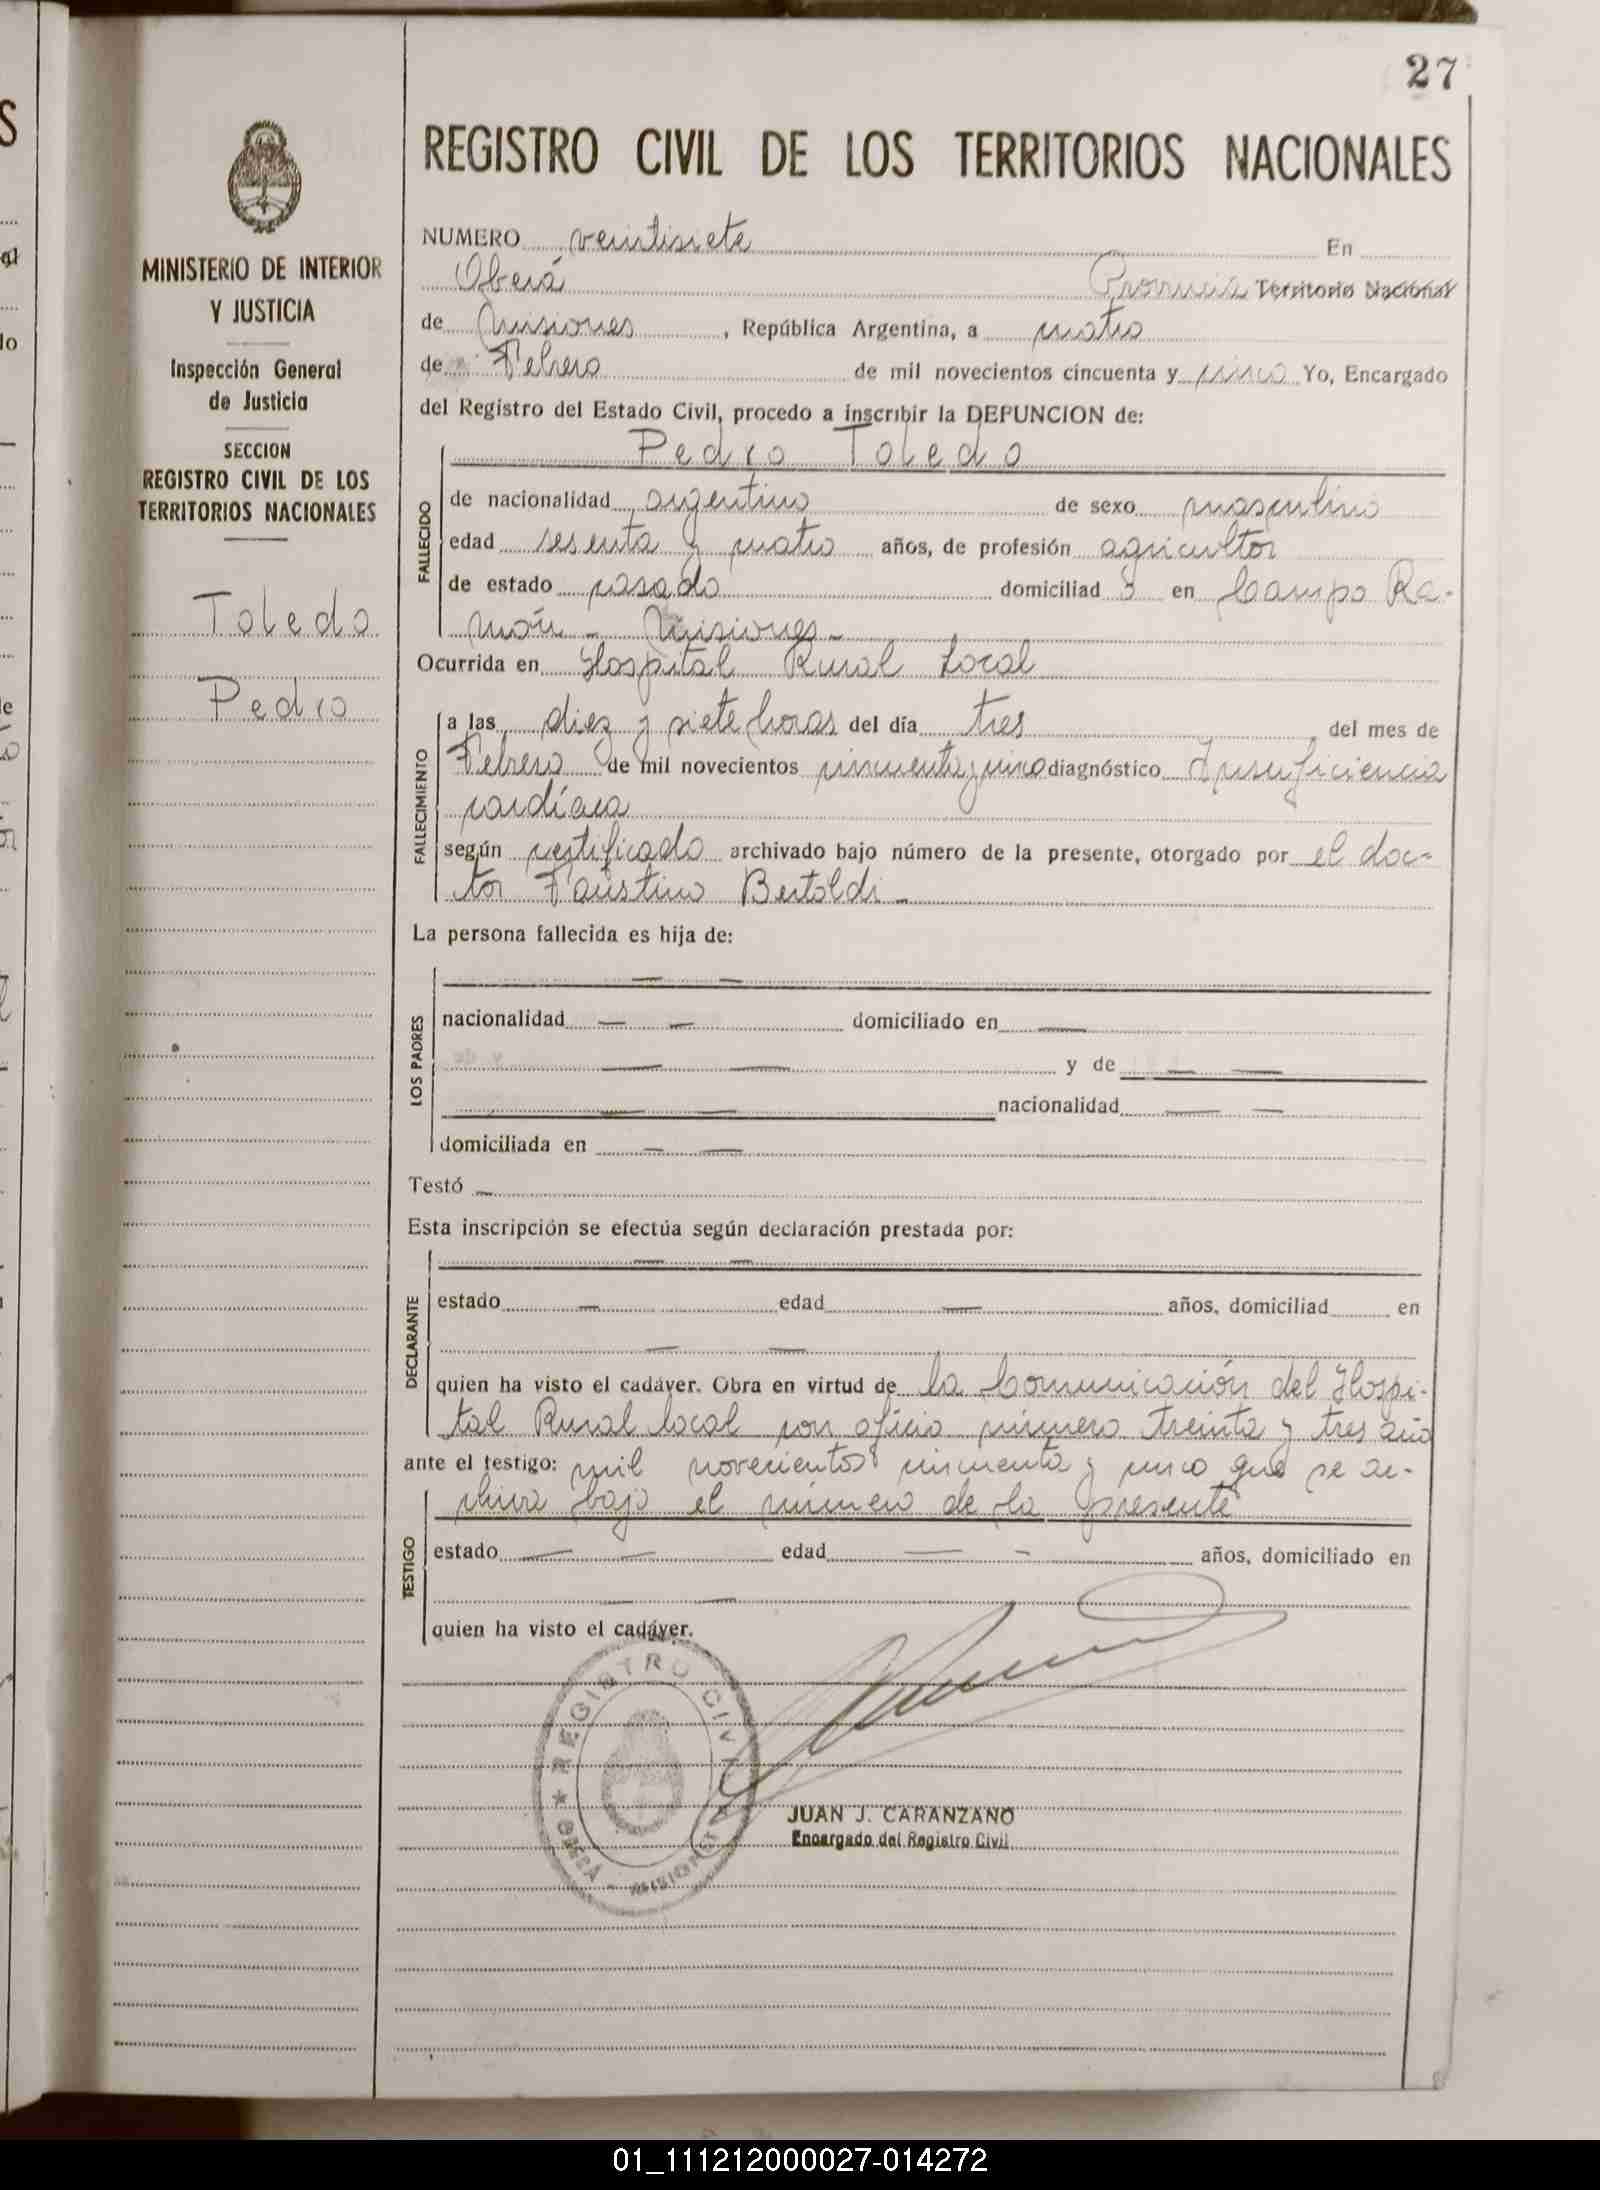 27
REGISTRO CIVIL DE LOS TERRITORIOS NACIONALES
MINISTERIO DE INTERIOR
Y JUSTICIA
Inspección General
de Justicia
SECCION
REGISTRO CIVIL DE LOS
TERRITORIOS NACIONALES
Toledo
Pedro
NUMERO veintisiete En
Oberá Provincia Territorio Nacional
de Misiones, República Argentina, a cuatro
de Febrero de mil novecientos cincuenta y cinco Yo, Encargado
del Registro del Estado Civil, procedo a inscribir la DEFUNCION de:
Pedro Toledo
FALLECIDO
de nacionalidad argentino de sexo masculino
edad sesenta y cuatro años, de profesión agricultor
de estado casado domiciliad o en Campo Ra-
món - Misiones -
Ocurrida en Hospital Rural Local
FALLECIMIENTO
a las diez y siete horas del día tres del mes de
Febrero de mil novecientos cincuenta y cinco diagnóstico Insuficiencia
cardíaca
según certificado archivado bajo número de la presente, otorgado por el doc-
tor Faustino Bertoldi -
La persona fallecida es hija de:
LOS PADRES
— —
nacionalidad — — domiciliado en —
— — y de — —
— — nacionalidad — —
domiciliada en — —
Testó —
Esta inscripción se efectúa según declaración prestada por:
DECLARANTE
— —
estado — edad — años, domiciliad en
— —
quien ha visto el cadáver. Obra en virtud de la Comunicación del Hospi-
tal Rural local con oficio número treinta y tres año
ante el testigo: mil novecientos cincuenta y cinco que se ar-
chiva bajo el número de la presente
TESTIGO
estado — — edad — - años, domiciliado en
— —
quien ha visto el cadáver.
REGISTRO CIVIL
★ OBERÁ - MISIONES
JUAN J. CARANZANO
Encargado del Registro Civil
01_111212000027-014272